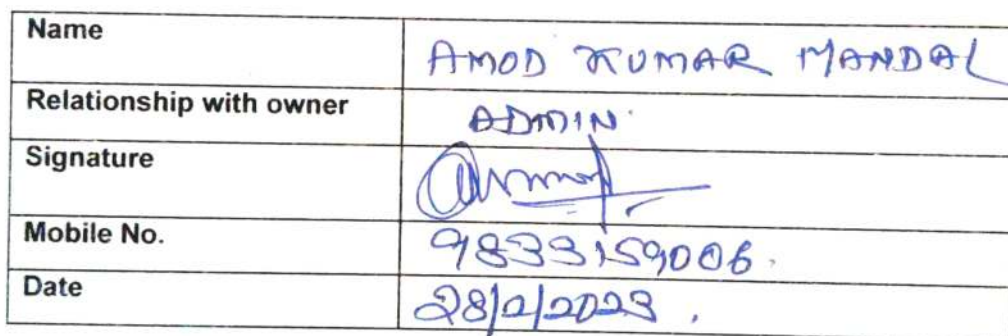 Name AMOD KUMAR MANDAL
Relationship with owner ADMIN.
Signature
Mobile No. 9833159006.
Date 28/2/2023.